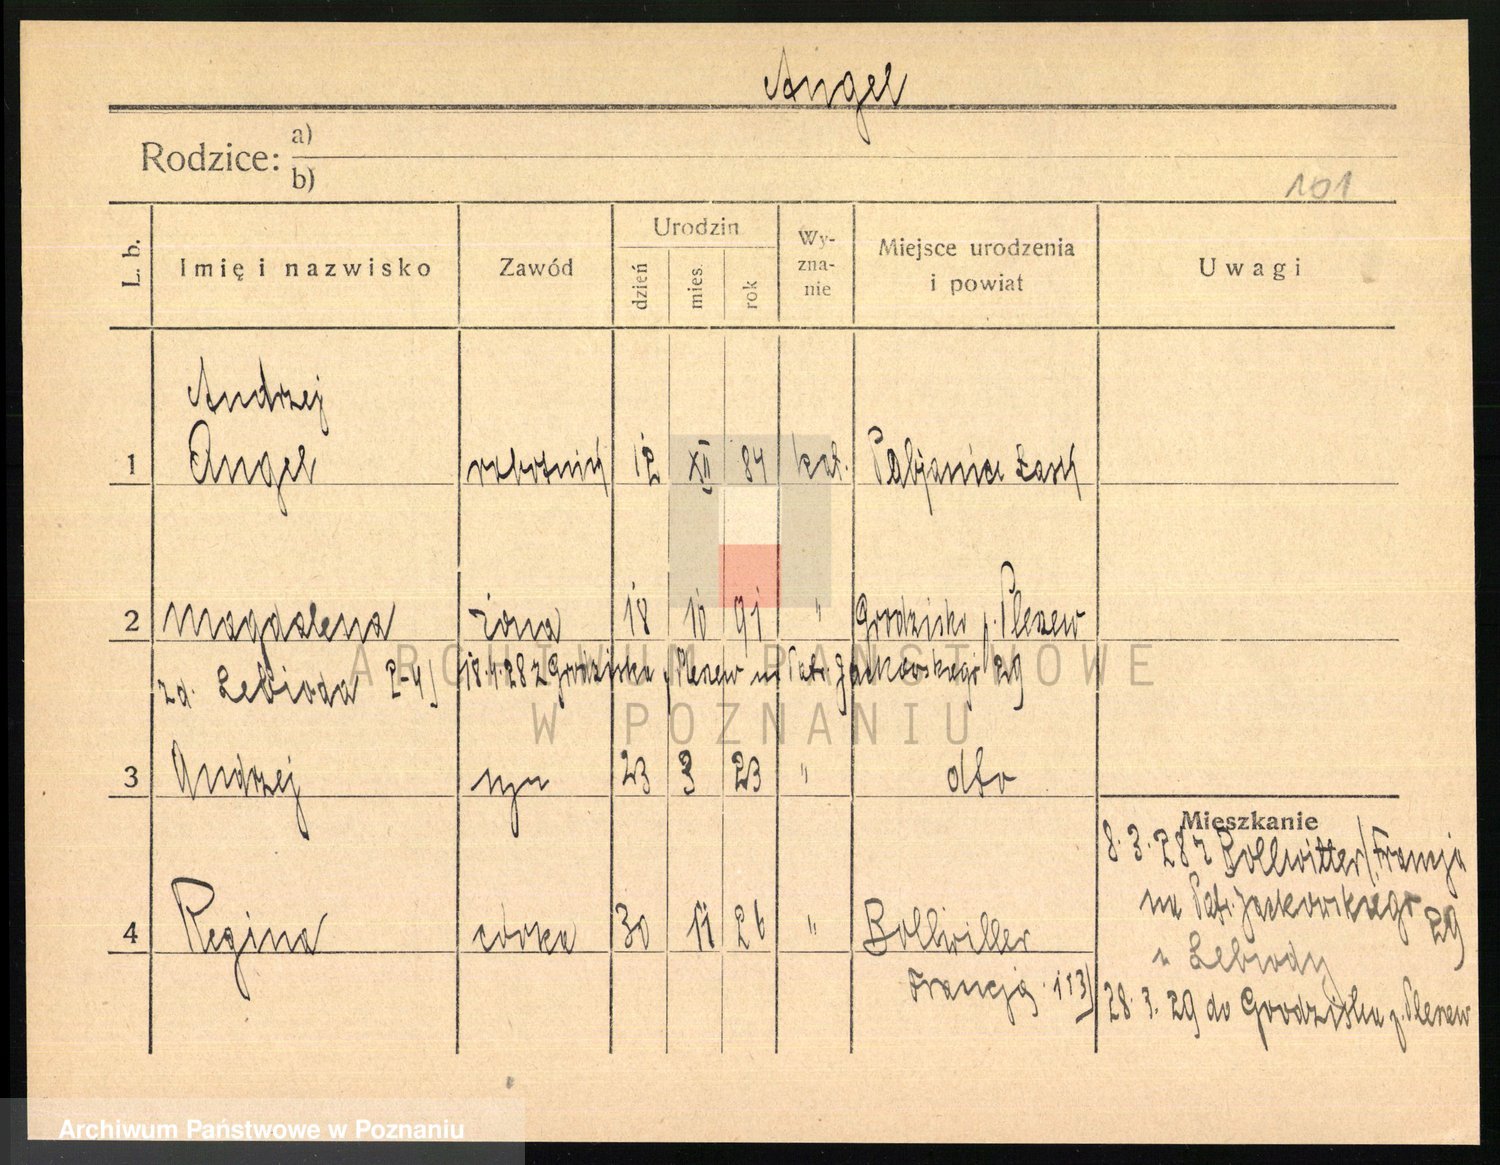 Angel
Rodzice: a)
b)
101
L. b. Imię i nazwisko Zawód Urodzin dzień mies. rok Wy-zna-nie Miejsce urodzenia i powiat Uwagi
Andrzej
1 Angel robotnik 12 XII 84 kat. Pabjanice Łask
2 Magdalena żona 18 10 91 " Grodzisko p. Pleszew
zd. Lebioda 2-4) 18.4.28 z Grodziska p. Pleszew na Patr. Jackowskiego 29
3 Andrzej syn 23 3 23 " dto
4 Regina córka 30 11 26 " Bollwiller
Francja 1-3)
Mieszkanie
8.3.28 z Bollwitter/Francja
na Patr. Jackowskiego 29
u Lebiody
28.3.29 do Grodziska p. Pleszew
ARCHIWUM PAŃSTWOWE
W POZNANIU
Archiwum Państwowe w Poznaniu